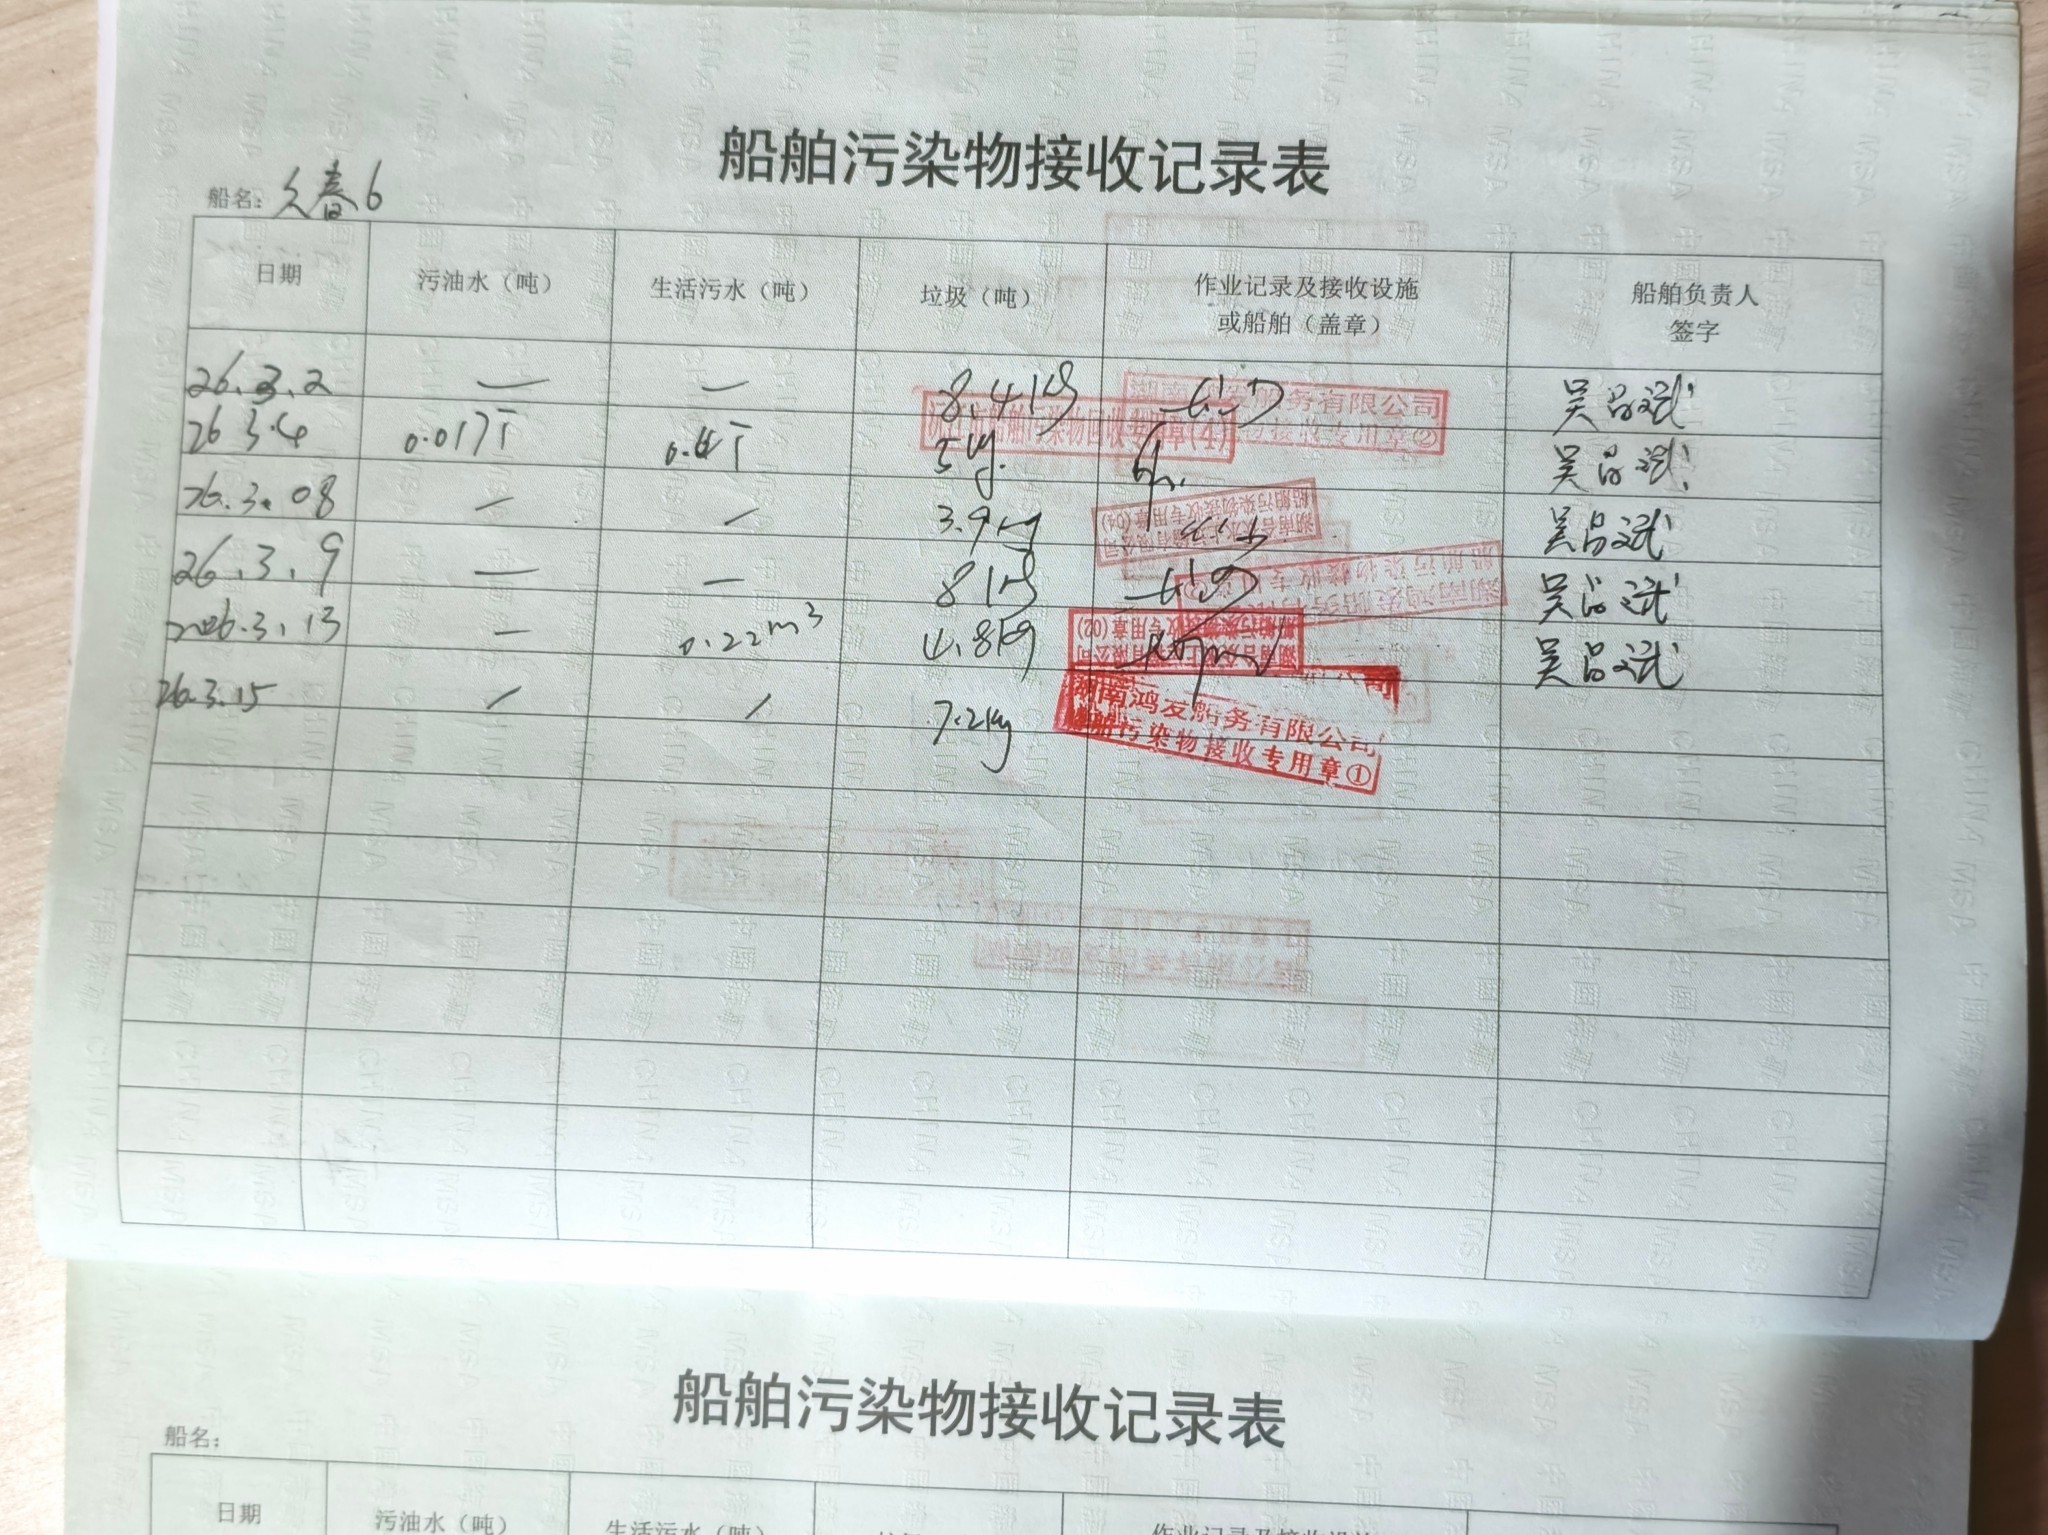 船舶污染物接收记录表
船名: 久春6
日期 污油水（吨） 生活污水（吨） 垃圾（吨） 作业记录及接收设施或船舶（盖章） 船舶负责人签字
26.3.2 — — 8.4kg 湖南鸿发船务有限公司 接收专用章② 吴品斌
26.3.4 0.017T 5kg 船舶污染物回收专用章(4) 吴品斌
26.3.08 / / 3.9kg 船舶污染物接收专用章(04) 吴品斌
26.3.9 — — 8kg 湖南鸿发船务有限公司 船舶污染物接收专用章 吴品斌
2026.3.13 — 0.22m3 4.8kg 专用章(02) 吴品斌
26.3.15 / / 7.2kg 湖南鸿发船务有限公司
船舶污染物接收专用章①
船舶污染物接收记录表
船名:
日期 污油水（吨） 生活污水（吨）